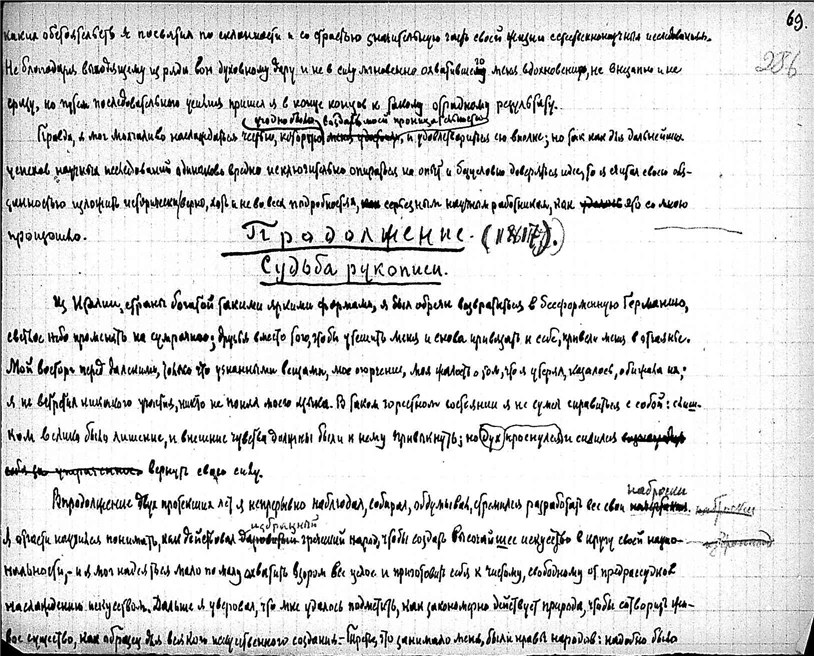 69.
286
каких обстоятельств я посвятил по склонности и со страстью значительную часть своей жизни естественнонаучным исследованиям.
Не благодаря выходящему из ряды вон духовному дару и не в силу мгновенно охватившего меня вдохновению, не внезапно и не
сразу, но путем последовательного усилия пришел я в конце концов к такому отрадному результату.
угодно было воздать моей проницательности
Правда, я мог молчаливо наслаждаться честью, которою и удовлетвориться ею вполне; но так как для дальнейших
успехов научных исследований одинаково вредно исключительно опираться на опыт и безусловно доверяться идее, то я считал своею обя-
занностью изложить исторически верно, хотя и не во всех подробностях, серьезным научным работникам, как это со мною
произошло.
Продолжение. (1817).
Судьба рукописи.
Из Италии, страны богатой такими яркими формами, я был обречен возвратиться в бесформенную Германию,
светлое небо променять на сумрачное; друзья вместо того, чтобы утешить меня и снова привязать к себе, привели меня в отчаянье.
Мой восторг перед далекими, только что узнанными вещами, мое огорчение, моя жалость о том, что я утерял, казалось, обижала их;
я не встретил никакого участия, никто не понял моего языка. В таком горестном состоянии я не сумел справиться с собой: слиш-
ком велико было лишение, и внешние чувства должны были к нему привыкнуть; но дух проснулся и силился
вернуть свою силу.
наброски
В продолжение двух протекших лет я непрерывно наблюдал, собирал, обдумывал, стремился разработать все свои
избранный
Я отчасти научился понимать, как действовал греческий народ, чтобы создать высочайшее искусство в кругу своей нацио-
нальности,- и я мог надеяться мало по малу охватить взором все целое и приготовить себя к чистому, свободному от предрассудков
наслаждению искусством. Дальше я уверовал, что мне удалось подметить, как закономерно действует природа, чтобы сотворить жи-
вое существо, как образец для всякого искусственного создания.- Третье, что занимало меня, были нравы народов: надобно было